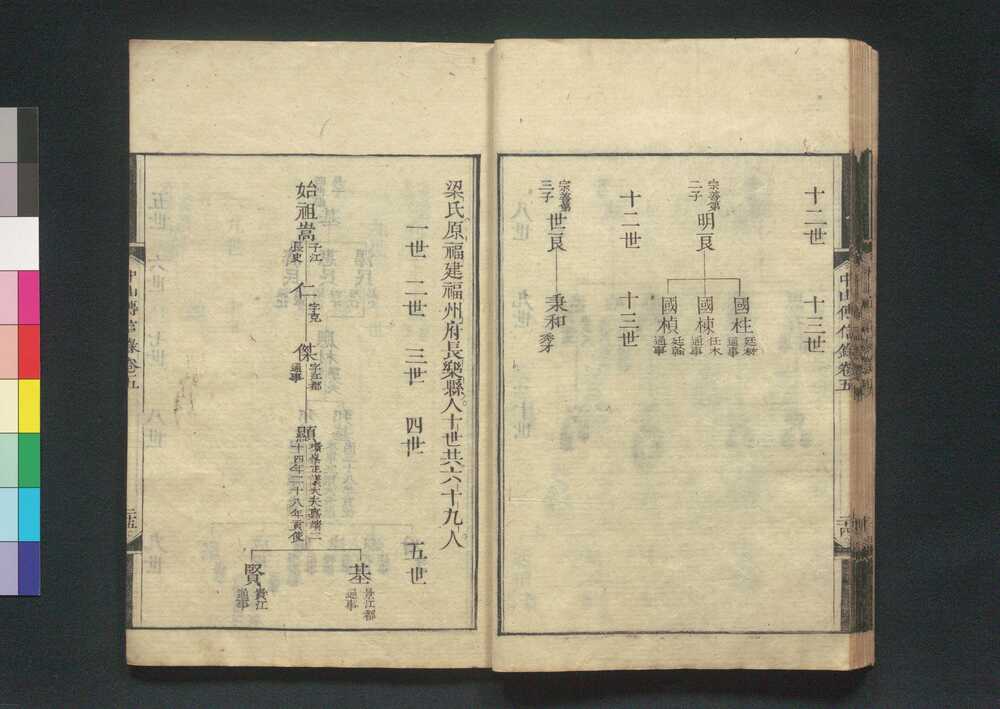 十二世 十三世
宗善第二子 明良 國柱 廷材通事
國棟 任木通事
國楨 廷翰通事
十二世 十三世
宗善第三子 世良 秉和 秀才
中山傳信錄卷五
梁氏原福建福州府長樂縣人十世共六十九人
一世 二世 三世 四世 五世
始祖嵩 子江長史 仁 字克 傑 字江都通事 顯 正議大夫嘉靖二十四年二十八年貢使
基 景江都通事
賢 貴江通事
中山傳信錄卷五